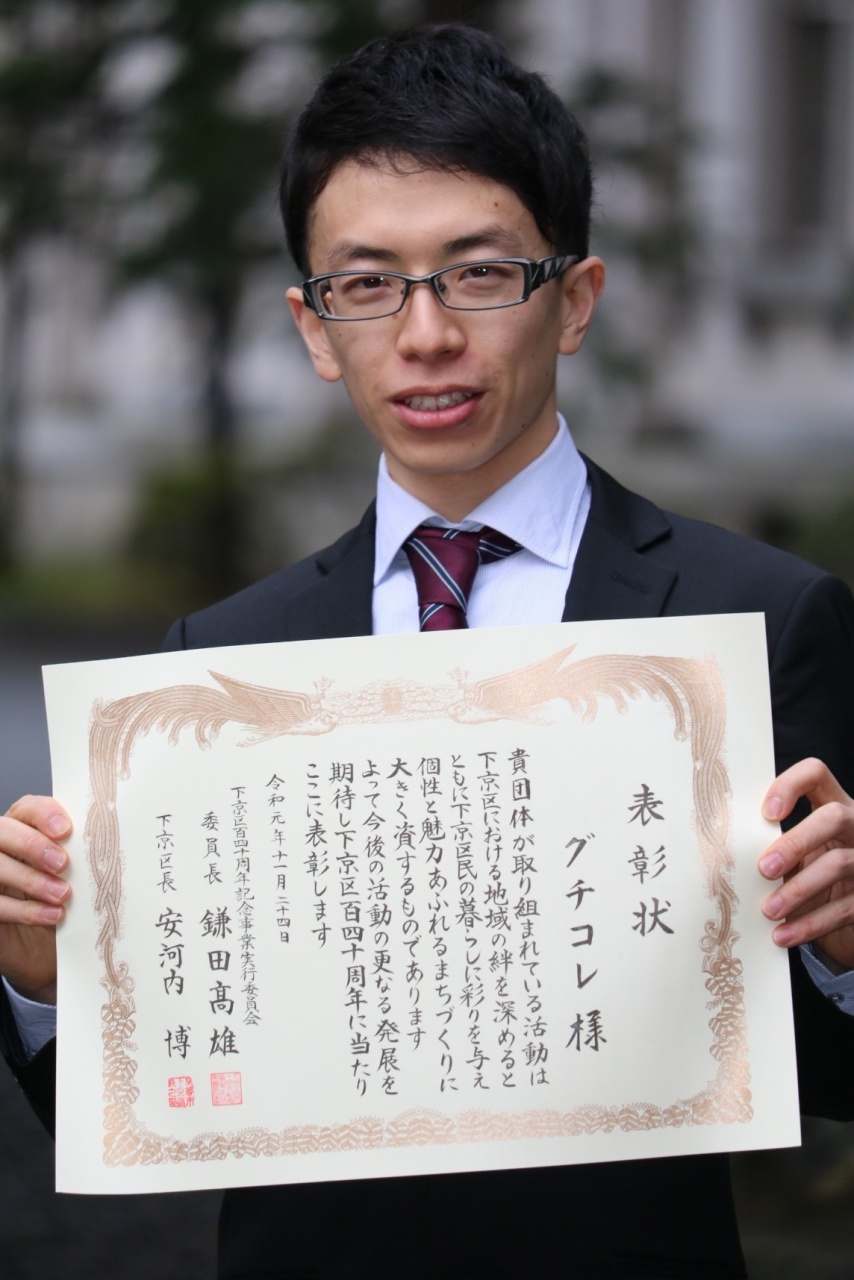 表彰状
グチコレ様
貴団体が取り組まれている活動は
下京区における地域の絆を深めると
ともに下京区民の暮らしに彩りを与え
個性と魅力あふれるまちづくりに
大きく資するものであります
よって今後の活動の更なる発展を
期待し下京区百四十周年に当たり
ここに表彰します
令和元年十一月二十四日
下京区百四十周年記念事業実行委員会
委員長 鎌田髙雄
下京区長 安河内 博